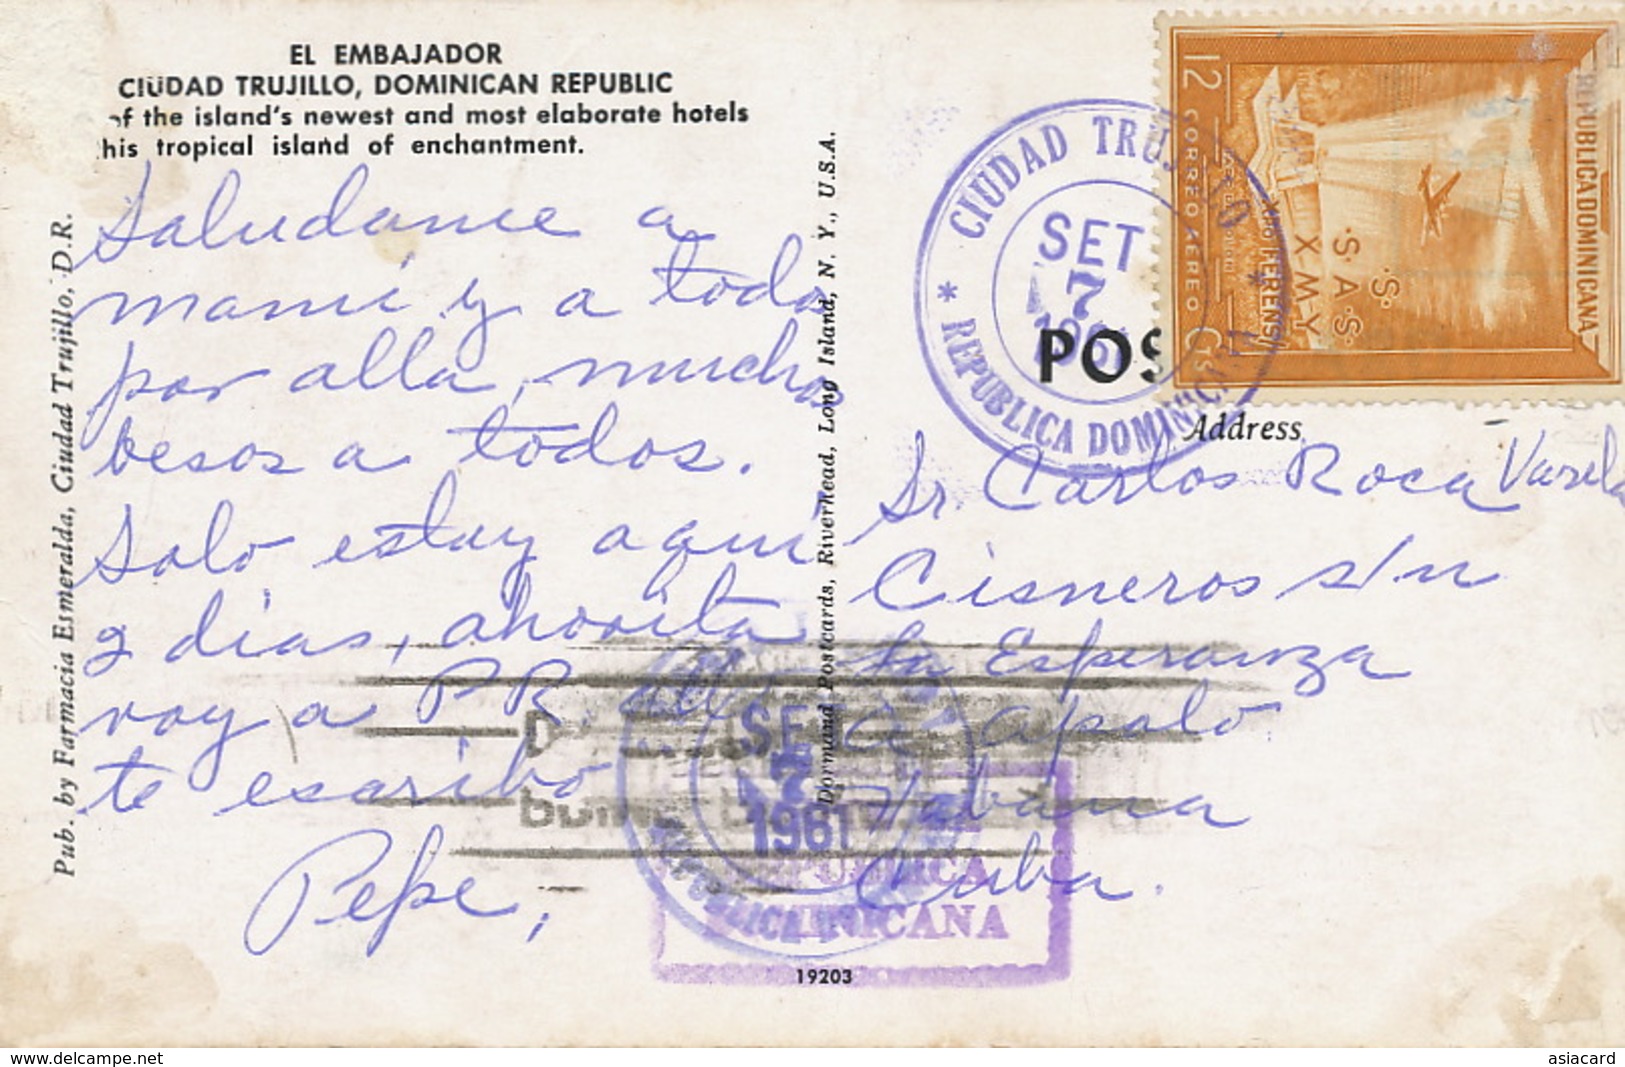 EL EMBAJADOR
CIUDAD TRUJILLO, DOMINICAN REPUBLIC
of the island's newest and most elaborate hotels
his tropical island of enchantment.
Saludame a
mami y a todos
por alla, muchos
besos a todos.
Solo estuy aqui
2 dias, ahorita
voy a PR. alli
te escribo
Pepe,
Pub. by Farmacia Esmeralda, Ciudad Trujillo, D.R.
Dormand Postcards, Riverhead, Long Island, N. Y., U.S.A.
19203
CIUDAD TRUJILLO
SET
7
1961
REPUBLICA DOMINICANA
POS
Address
REPUBLICA DOMINICANA
12 CORREO AEREO Cts
S.
S.A.S.
XMY
Sr. Carlos Roca Varela
Cisneros s/n
La Esperanza
apolo
Habana
Cuba.
SET
7
1961
REPUBLICA
DOMINICANA
www.delcampe.net
asiacard